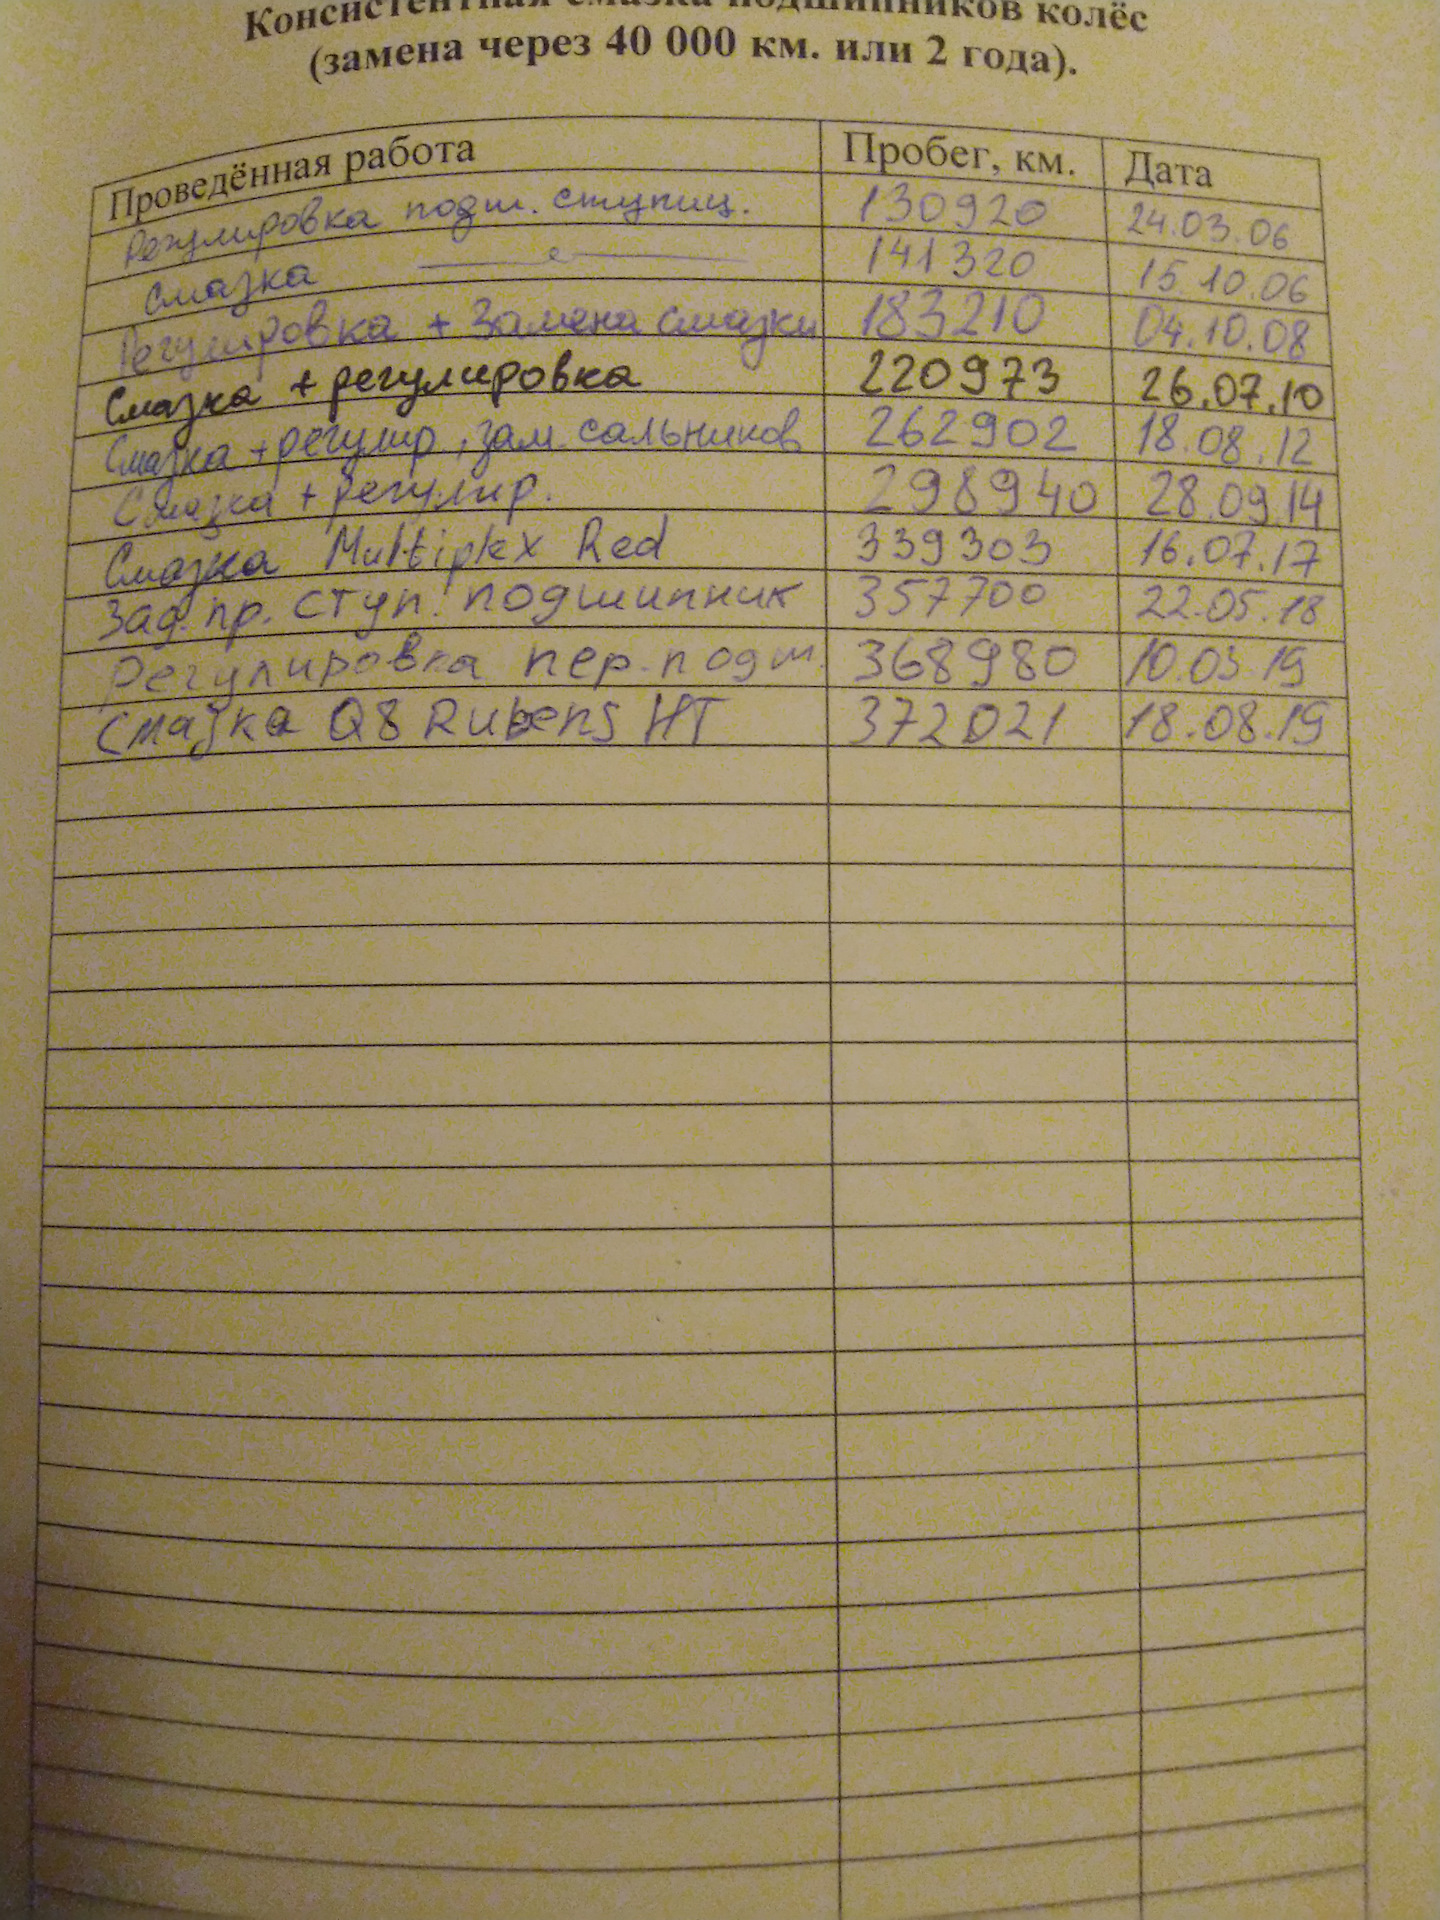 Консистентная смазка подшипников колёс
(замена через 40 000 км. или 2 года).
Проведённая работа Пробег, км. Дата
Регулировка подш. ступиц. 130920 24.03.06
Смазка 141320 15.10.06
Регулировка + Замена смазки 183210 04.10.08
Смазка + регулировка 220973 26.07.10
Смазка + регулир, зам. сальников 262902 18.08.12
Смазка + регулир. 298940 28.09.14
Смазка Multiplex Red 339303 16.07.17
Зад. пр. ступ. подшипник 357700 22.05.18
Регулировка пер. подш. 368980 10.03.19
Смазка Q8 Rubens HT 372021 18.08.19